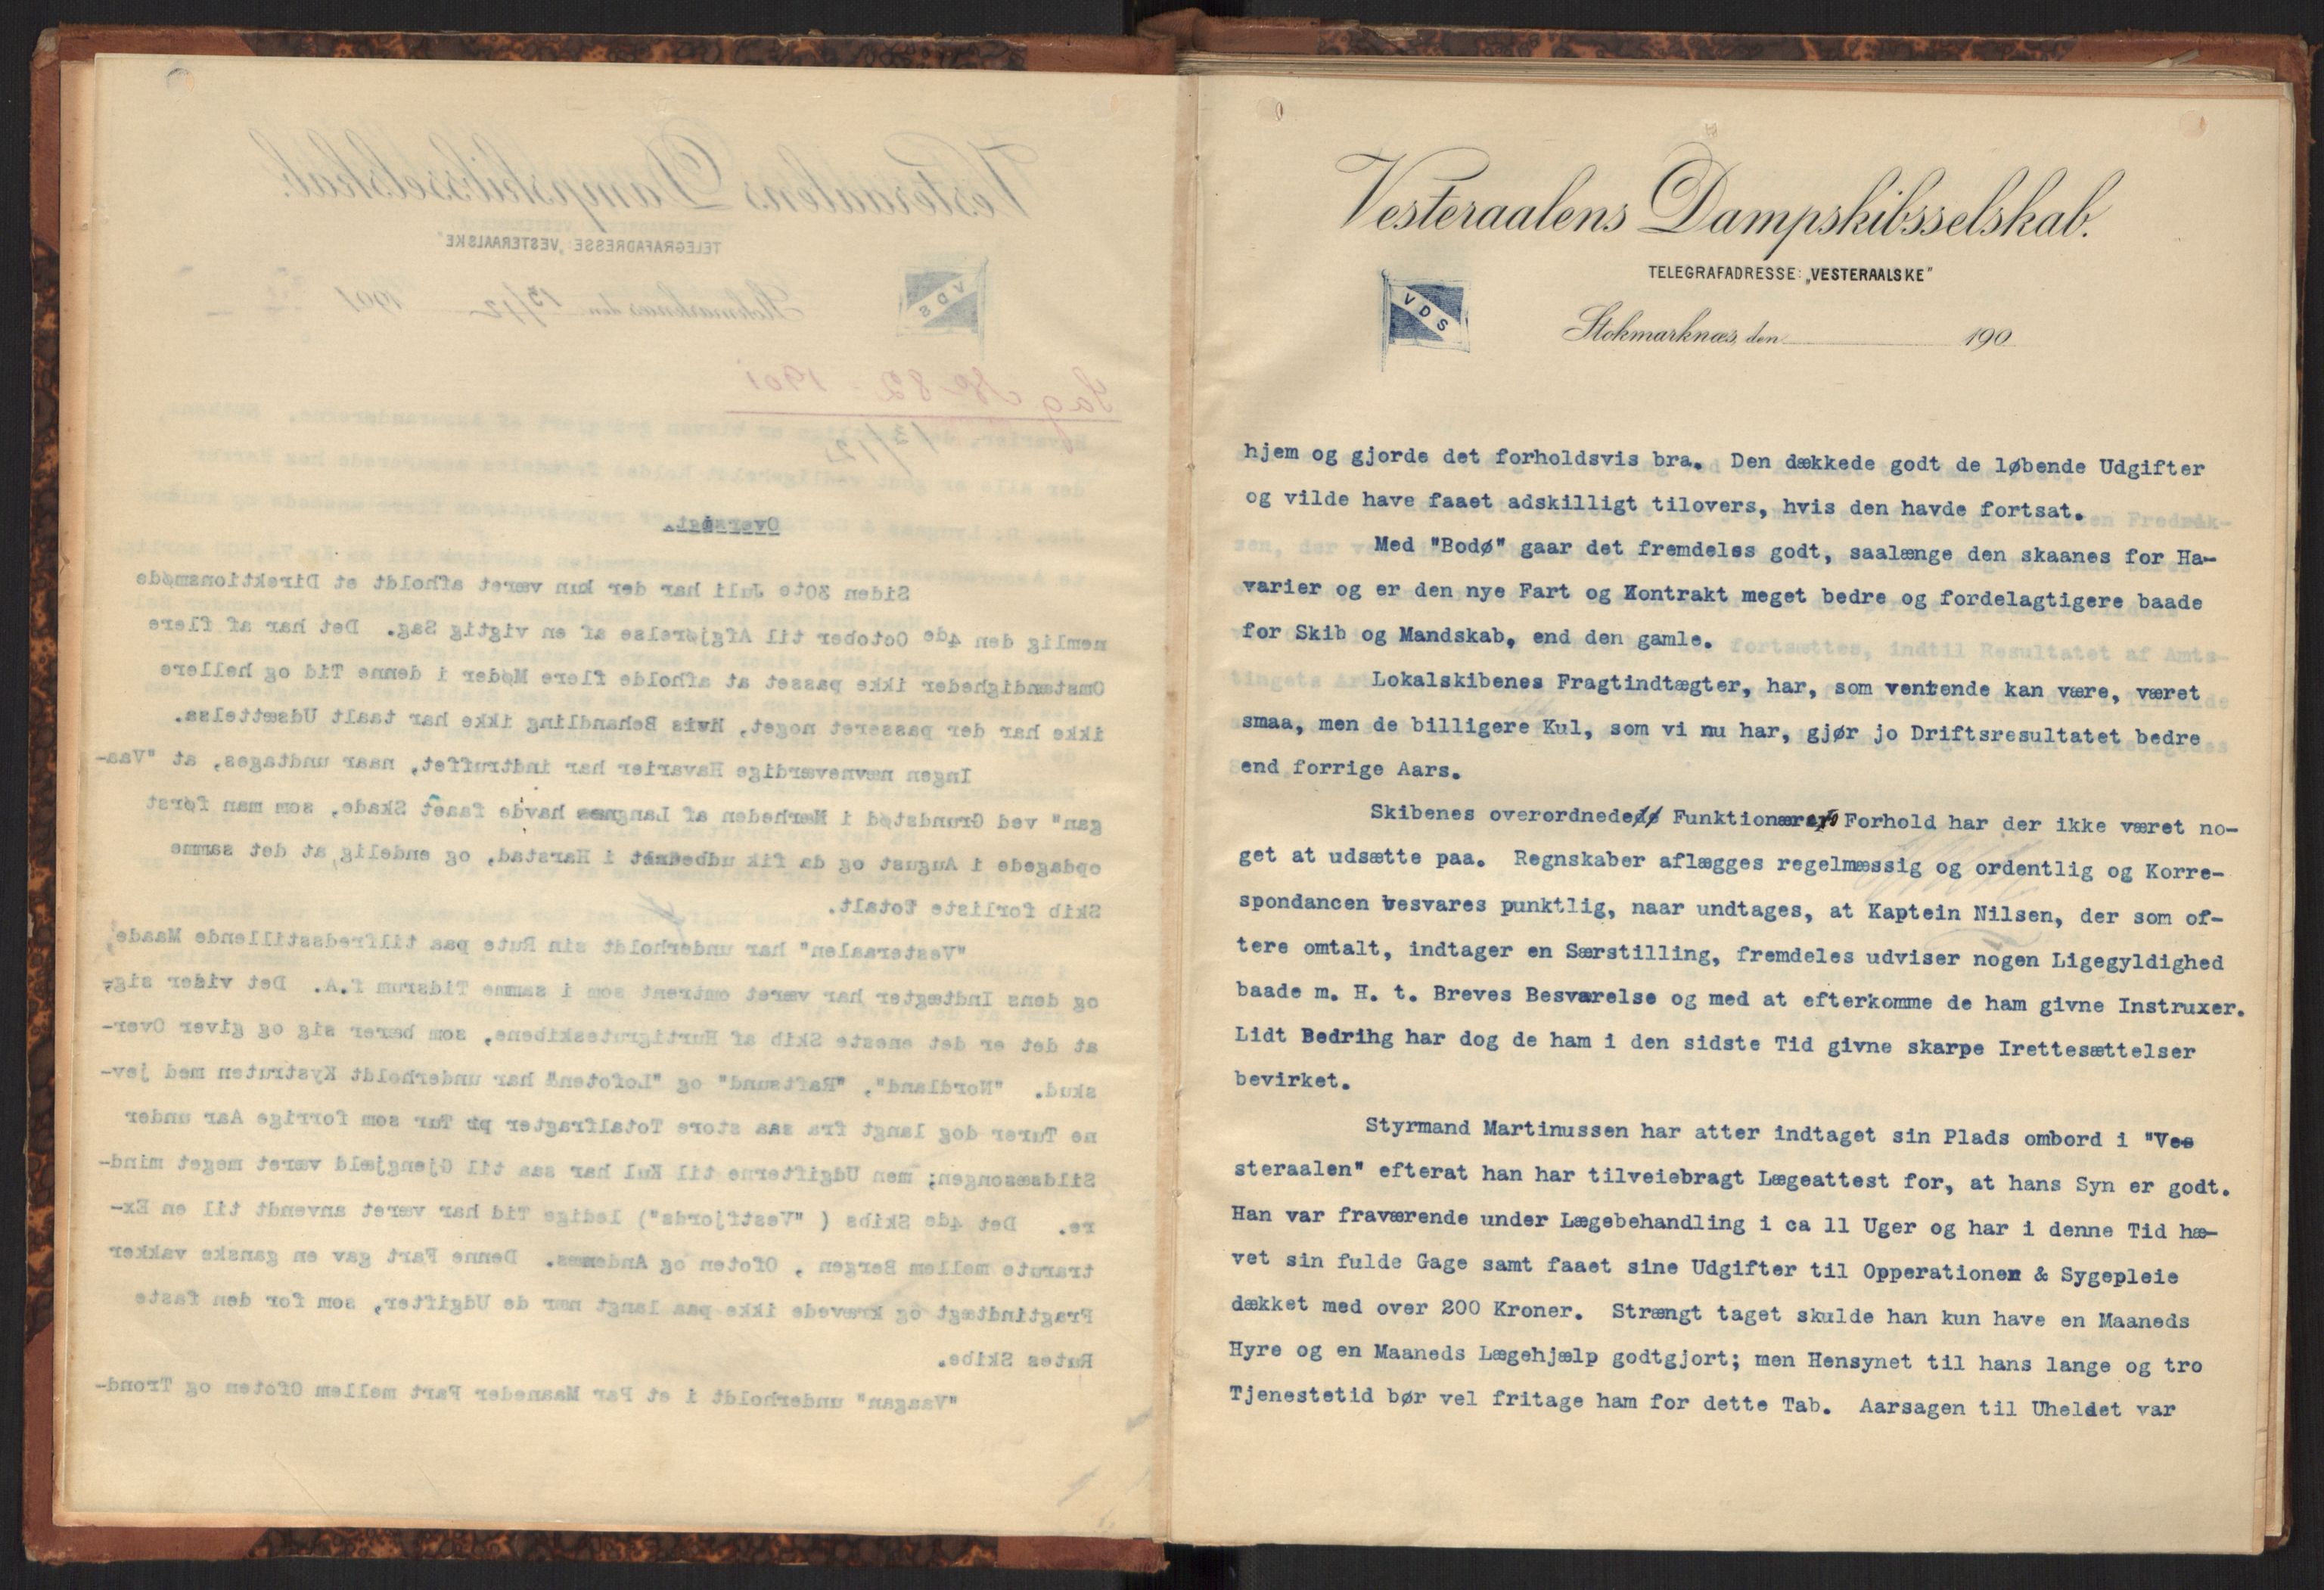 Vesteraalens Dampskibsselskab.
TELEGRAFADRESSE: „VESTERAALSKE"
Stokmarknæs, den 13/12 1901
Sag № 82 - 1901
13/12
Oversigt.
Siden 30te Juli har der kun været afholdt et Direktionsmøde
nemlig den 4de October til Afgjørelse af en vigtig Sag. Det har af flere
Omstændigheder ikke passet at afholde flere Møder i denne Tid og hellere
ikke har der passeret noget, Hvis Behandling ikke har taalt Udsættelse.
Ingen nævneværdige Havarier har indtruffet, naar undtages, at "Vaa-
gan" ved Grundstød i Nærheden af Langnæs havde faaet Skade, som man først
opdagede i August og da fik udbedret i Harstad, og endelig, at det samme
Skib forliste totalt.
"Vesteraalen" har underholdt sin Rute paa tilfredsstillende Maade,
og dens Indtægter har været omtrent som i samme Tidsrum f.A. Det viser sig,
at det er det eneste Skib af Hurtigruteskibene, som bærer sig og giver Over-
skud. "Nordland", "Raftsund" og "Lofoten" har underholdt Kystruten med jev-
ne Turer dog langt fra saa store Totalfragter pr Tur som forrige Aar under
Sildsæsongen; men Udgifterne til Kul har saa til Gjengjæld været meget mind-
re. Det 4de Skibs ( "Vestfjords") ledige Tid har været anvendt til en Ex-
trarute mellem Bergen , Ofoten og Andenæs. Denne Fart gav en ganske vakker
Fragtindtægt og krævede ikke paa langt nær de Udgifter, som for den faste
Rutes Skibe.
"Vaagan" underholdt i et Par Maaneder Fart mellem Ofoten og Trond-
Vesteraalens Dampskibsselskab.
TELEGRAFADRESSE: „VESTERAALSKE"
VDS
Stokmarknæs, den 190
hjem og gjorde det forholdsvis bra. Den dækkede godt de løbende Udgifter
og vilde have faaet adskilligt tilovers, hvis den havde fortsat.
Med "Bodø" gaar det fremdeles godt, saalænge den skaanes for Ha-
varier og er den nye Fart og Kontrakt meget bedre og fordelagtigere baade
for Skib og Mandskab, end den gamle.
Lokalskibenes Fragtindtægter, har, som ventende kan være, været
smaa, men de billigere Kul, som vi nu har, gjør jo Driftsresultatet bedre
end forrige Aars.
Skibenes overordnede Funktionærers Forhold har der ikke været no-
get at udsætte paa. Regnskaber aflægges regelmæssig og ordentlig og Korre-
spondancen besvares punktlig, naar undtages, at Kaptein Nilsen, der som of-
tere omtalt, indtager en Særstilling, fremdeles udviser nogen Ligegyldighed
baade m. H. t. Breves Besvarelse og med at efterkomme de ham givne Instruxer.
Lidt Bedrihg har dog de ham i den sidste Tid givne skarpe Irettesættelser
bevirket.
Styrmand Martinussen har atter indtaget sin Plads ombord i "Ves
steraalen" efterat han har tilveiebragt Lægeattest for, at hans Syn er godt.
Han var fraværende under Lægebehandling i ca 11 Uger og har i denne Tid hæ-
vet sin fulde Gage samt faaet sine Udgifter til Opperationen & Sygepleie
dækket med over 200 Kroner. Strængt taget skulde han kun have en Maaneds
Hyre og en Maaneds Lægehjælp godtgjort; men Hensynet til hans lange og tro
Tjenestetid bør vel fritage ham for dette Tab. Aarsagen til Uheldet var